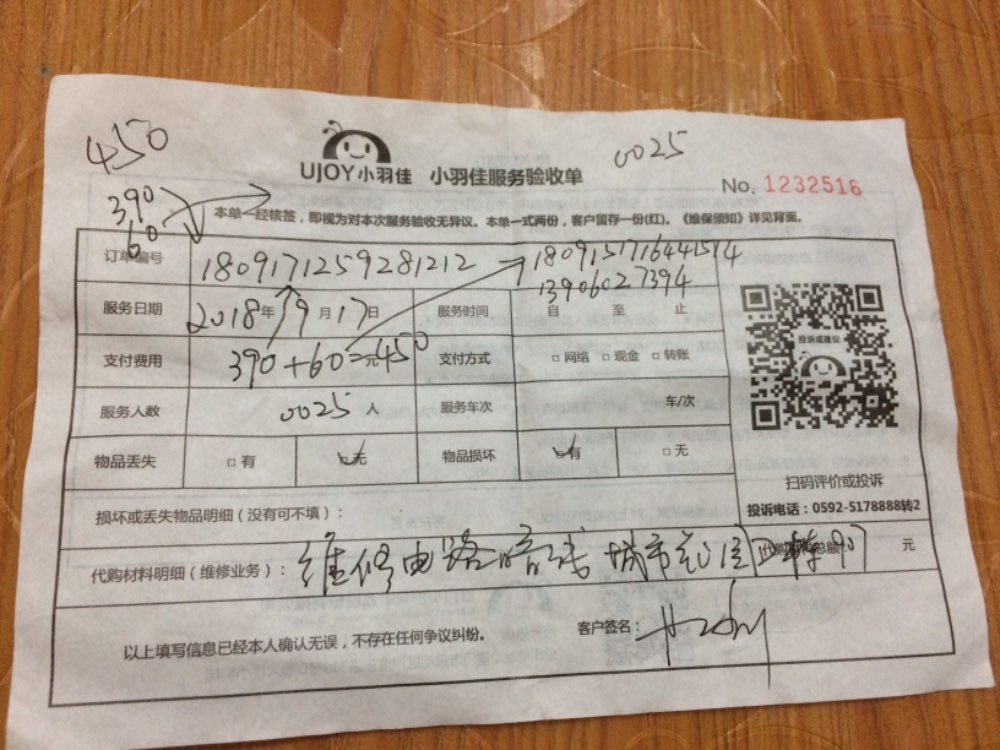 450
0025
UJOY小羽佳 小羽佳服务验收单
No. 1232516
390
60
本单一经核签，即视为对本次服务验收无异议。本单一式两份，客户留存一份(红)。《维保须知》详见背面。
订单编号 1809171259281212 1809151716441514
13906027394
服务日期 2018年9月17日 服务时间 自 至 止
支付费用 390+60=元450 支付方式 □网络 □现金 □转账
投诉或建议
服务人数 0025人 服务车次 车/次
物品丢失 □有 □无 物品损坏 □有 □无
扫码评价或投诉
损坏或丢失物品明细（没有可不填）：
投诉电话：0592-5178888转2
代购材料明细（维修业务）： 维修电路 城市 907 元
以上填写信息已经本人确认无误，不存在任何争议纠纷。 客户签名：